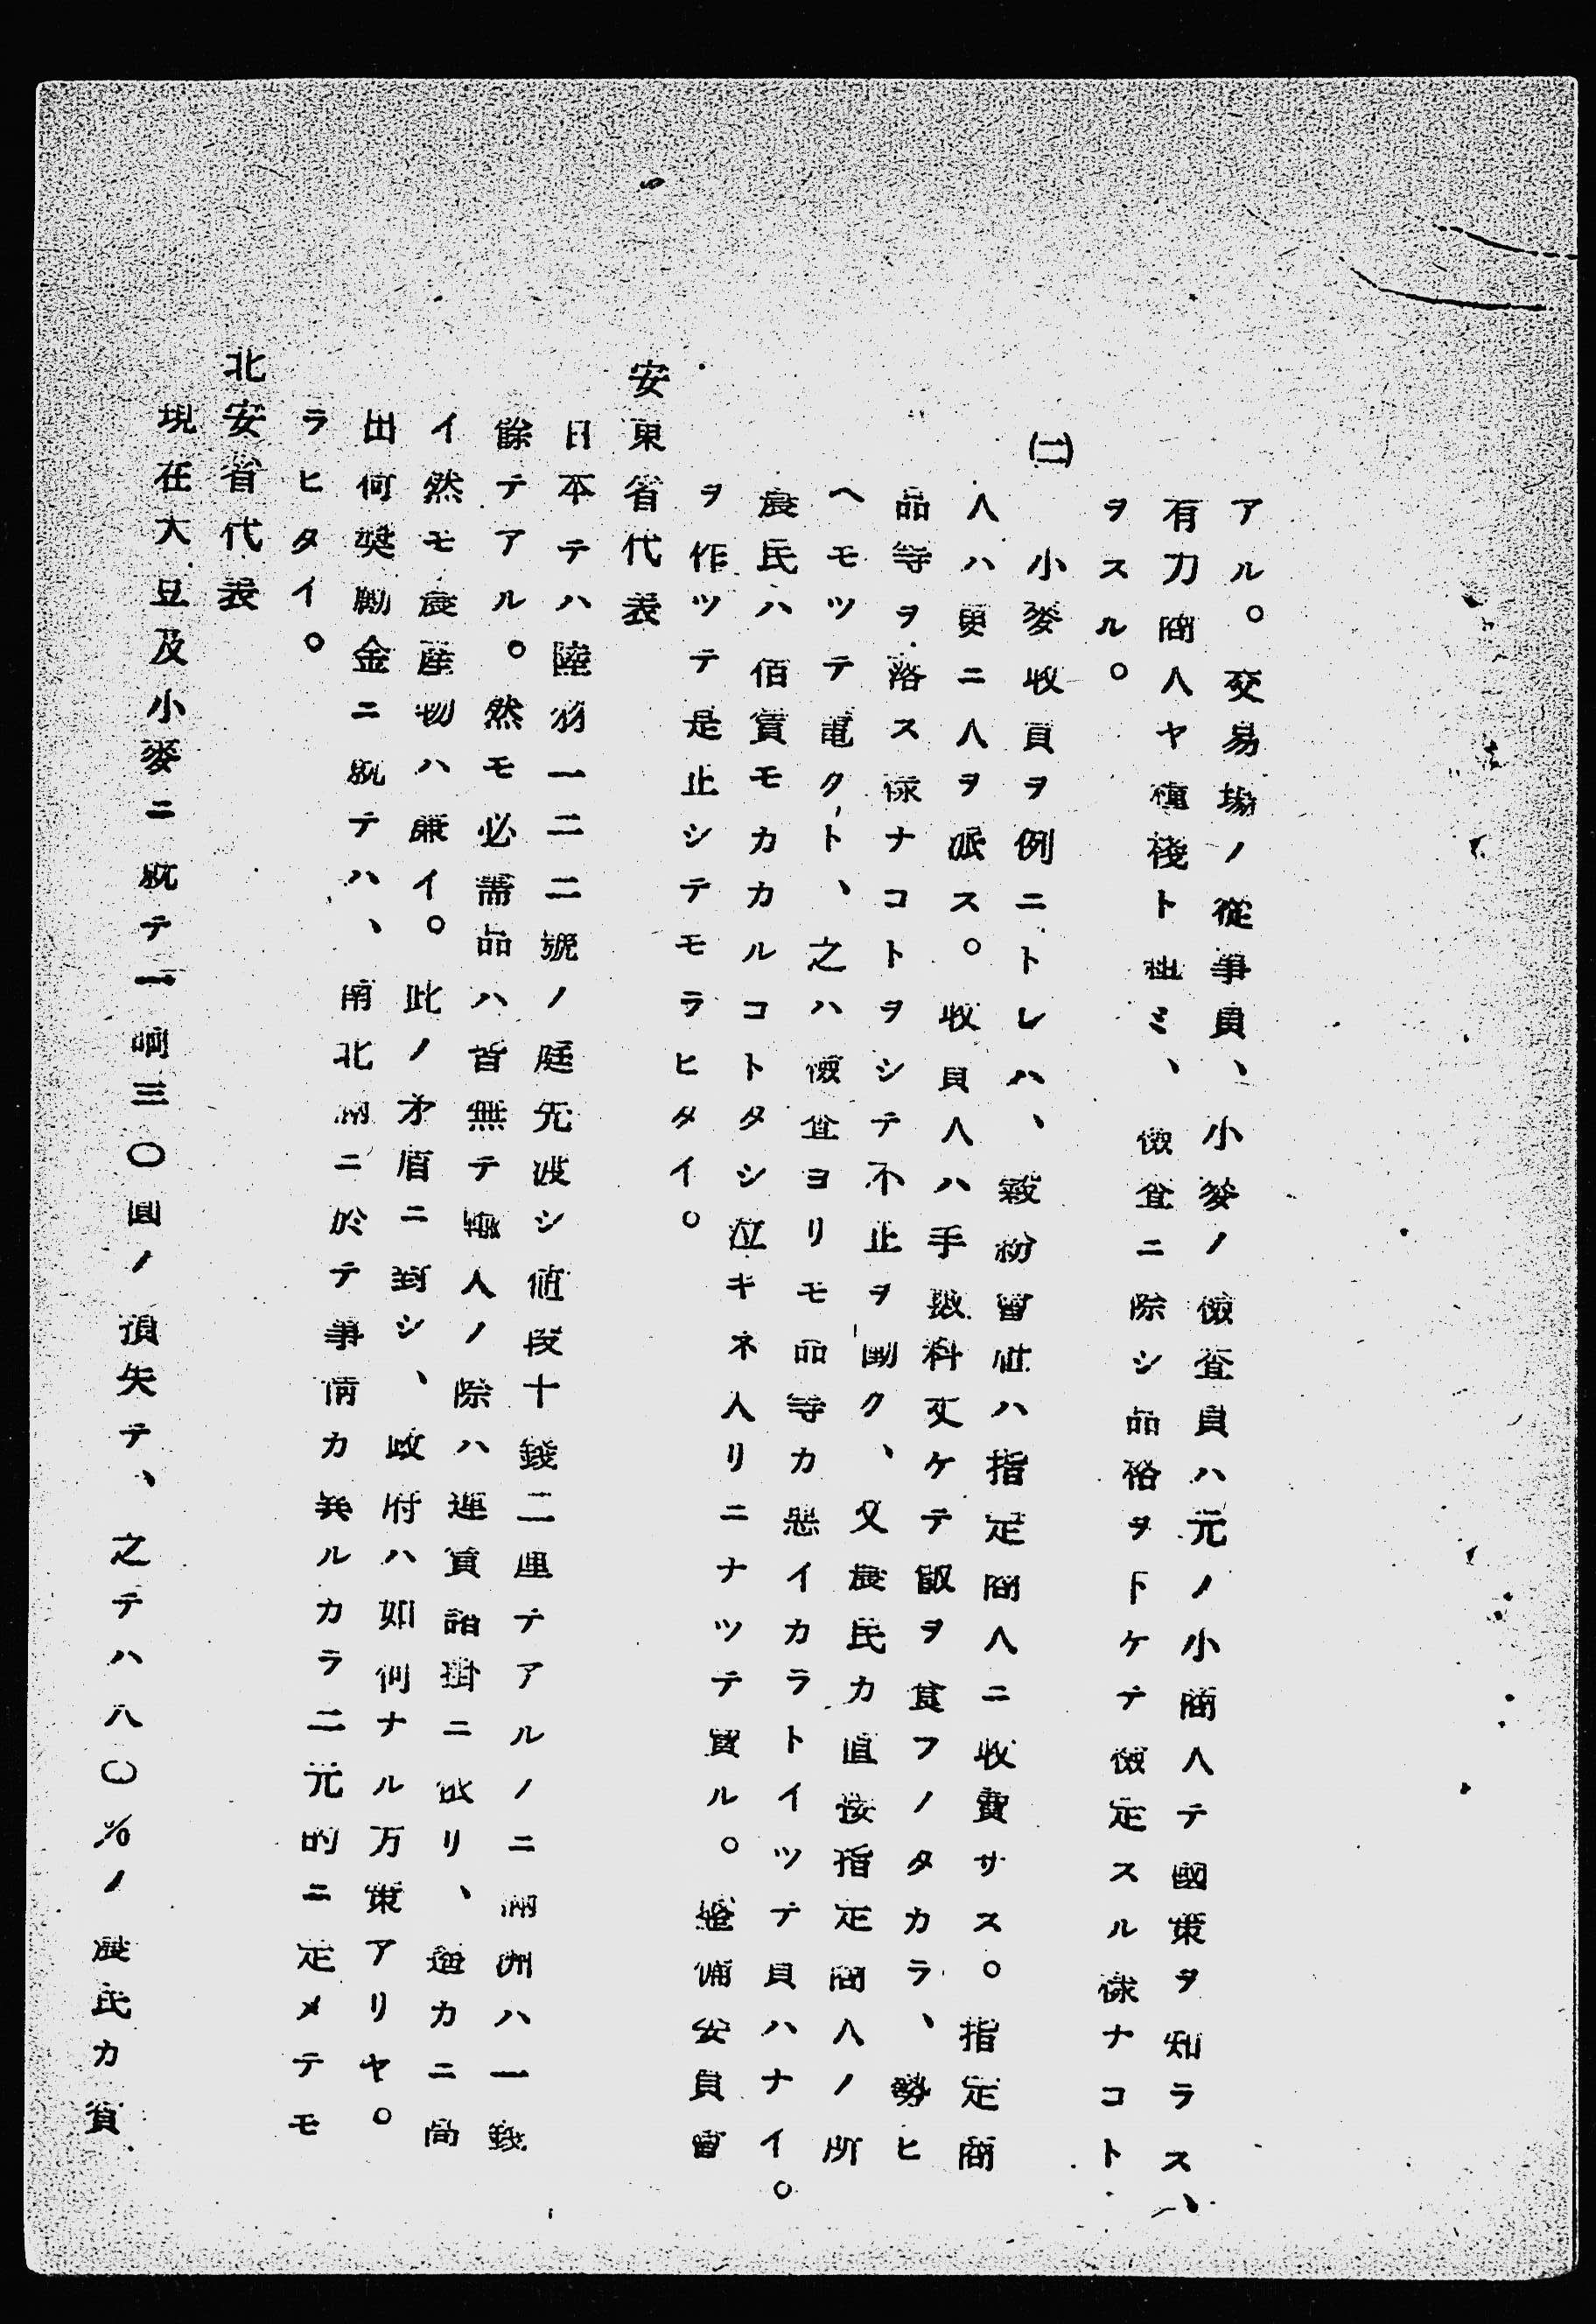 アル。交易場ノ從事員、小麥ノ檢査員ハ元ノ小商人テ國策ヲ知ラス、
有力商人ヤ糧棧ト組ミ、檢査ニ際シ品格ヲ下ケテ檢定スル樣ナコト
ヲスル。
(二)小麥收買ヲ例ニトレハ、穀粉會社ハ指定商人ニ收買サス。指定商
人ハ更ニ人ヲ派ス。收買人ハ手數料丈ケテ飯ヲ食フノタカラ、勢ヒ
品等ヲ落ス樣ナコトヲシテ不正ヲ働ク、又農民カ直接指定商人ノ所
ヘモツテ電クト、之ハ檢査ヨリモ品等カ惡イカラトイツテ買ハナイ。
農民ハ宿賃モカカルコトタシ泣キネ入リニナツテ賣ル。整備委員會
ヲ作ツテ是正シテモラヒタイ。
安東省代表
日本テハ陸羽一三二號ノ庭先渡シ値段十錢二厘テアルノニ滿洲ハ一錢
餘テアル。然モ必需品ハ皆無テ輸入ノ際ハ運賃諸掛ニ依リ、遙カニ高
イ然モ農産物ハ廉イ。此ノ矛盾ニ對シ、政府ハ如何ナル方策アリヤ。
出荷奬勵金ニ就テハ、南北滿ニ於テ事情カ異ルカラ二元的ニ定メテモ
ラヒタイ。
北安省代表
現在大豆及小麥ニ就テ一晌三〇圓ノ損失テ、之テハ八〇%ノ農民カ貧